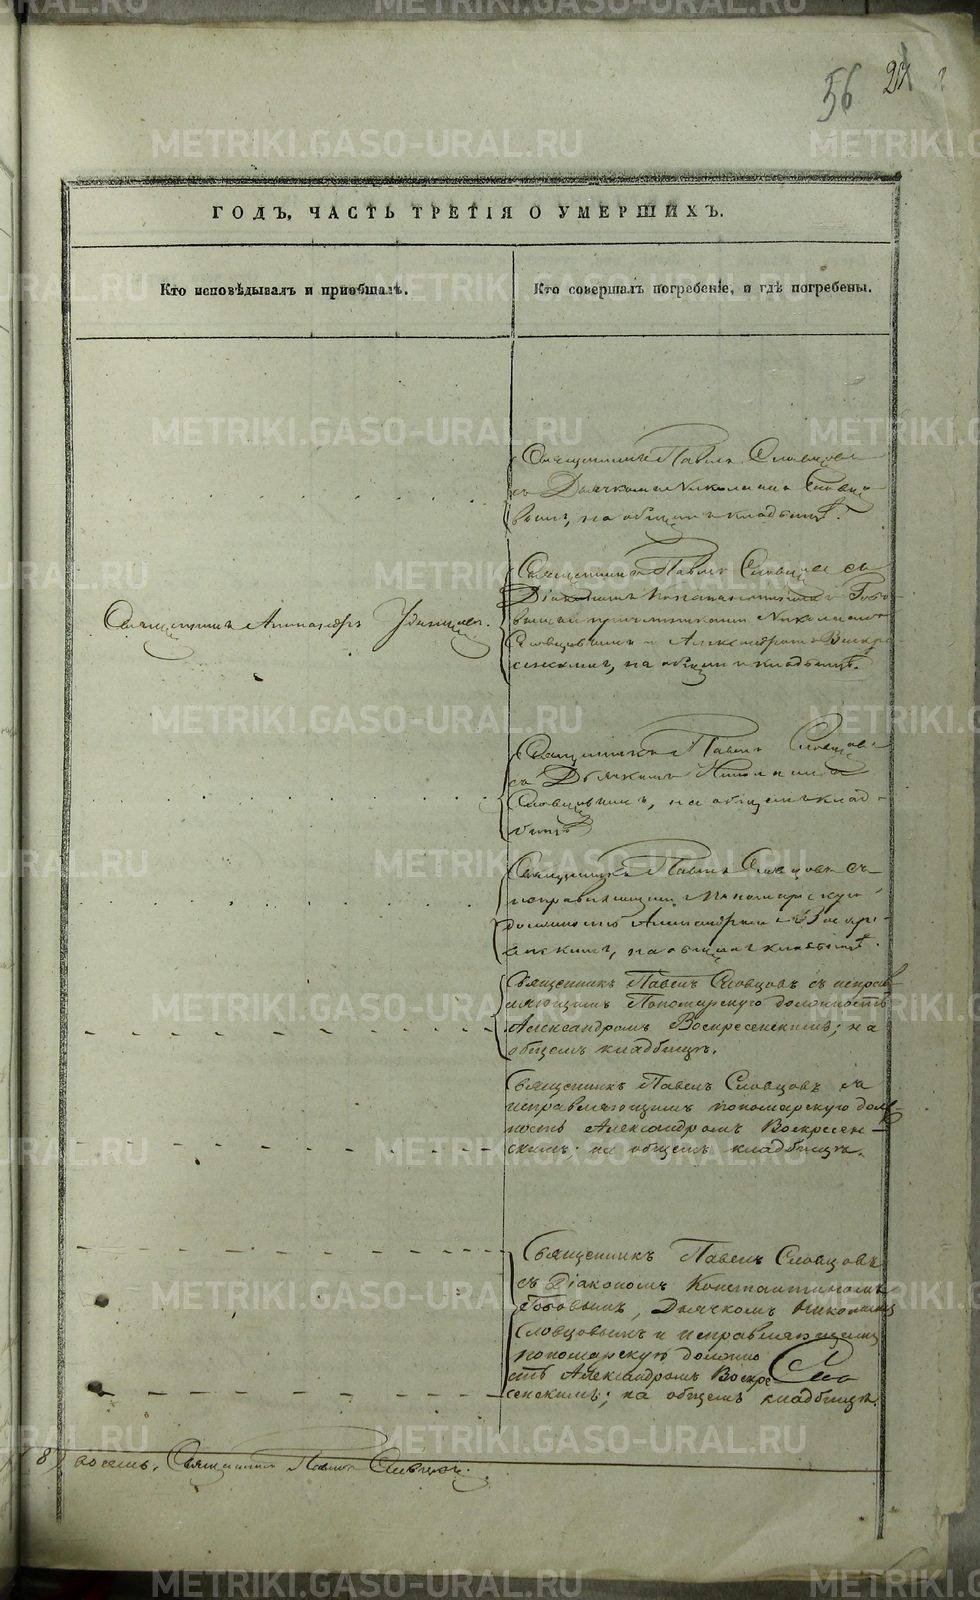 56
ГОДЪ, ЧАСТЬ ТРЕТІЯ О УМЕРШИХЪ.
Кто исповѣдывалъ и приобщалъ.
Кто совершалъ погребеніе, и гдѣ погребены.
Священникъ Павелъ Словцовъ
съ Дьячкомъ Николаемъ Словцо-
вымъ, на общемъ кладбищѣ.
Священникъ Павелъ Словцовъ съ
Діакономъ Константиномъ Гото-
вымъ и причетниками Николаемъ
Словцовымъ и Александромъ Воскре-
сенскимъ, на общемъ кладбищѣ.
Священникъ
Священникъ Павелъ Словцовъ
съ Дьячкомъ Николаемъ
Словцовымъ, на общемъ клад-
бищѣ
Священникъ Павелъ Словцовъ съ
исправляющимъ Пономарскую
должность Александромъ Воскре-
сенскимъ, на общемъ кладбищѣ.
Священникъ Павелъ Словцовъ съ исправ-
ляющимъ Пономарскую должность
Александромъ Воскресенскимъ; на
общемъ кладбищѣ.
Священникъ Павелъ Словцовъ съ
исправляющимъ пономарскую долж-
ность Александромъ Воскресен-
скимъ; на общемъ кладбищѣ.
Священникъ Павелъ Словцовъ
съ Діакономъ Константиномъ
Готовымъ, Дьячкомъ Николаемъ
Словцовымъ и исправляющимъ
пономарскую должно
сть Александромъ Воскре
сенскимъ; на общемъ кладбищѣ.
8) восемь. Священникъ Павелъ Словцовъ.
METRIKI.GASO-URAL.RU